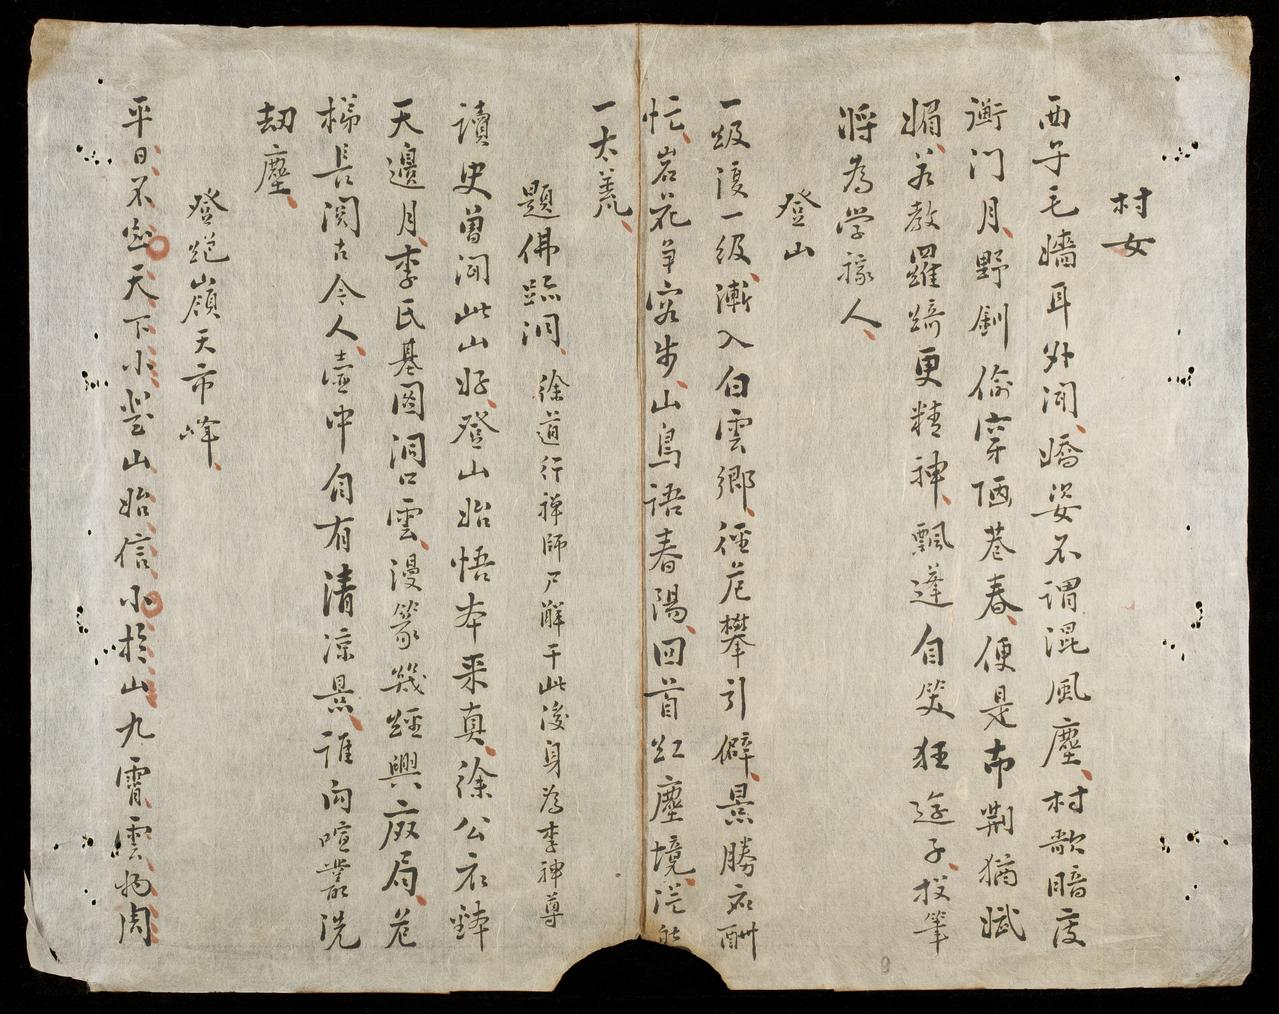 村女
西子毛嬙耳外聞、嬌姿不謂混風塵、村歌暗度
衡门月、野釧偷穿陋巷春、便是布荆猶斌
媚、若教羅綺更精神、飄蓬自笑狂遊子、投筆
將為学稼人、
登山
一级復一级、漸入白雲鄉、徑危攀引僻、景勝应酬
忙、岩花争客步、山鳥語春陽、回首红塵境、茫
一太荒、
題佛跡洞、徐道行禅師尸解于此後身為李神尊
讀史曾聞此山好、登山始悟本来真、徐公衣鉢
天邊月、李氏基圖洞口雲、漫篆幾經興廢局、危
梯長閱古今人、壺中自有清凉景、誰向喧叢洗
劫塵、
登嶺天市峰、
平日不知天下小、登山始信小於山、九霄雲物